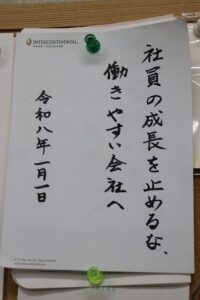 INTERCONTINENTAL
社員の成長を止めるな、
働きやすい会社へ
令和八年一月一日